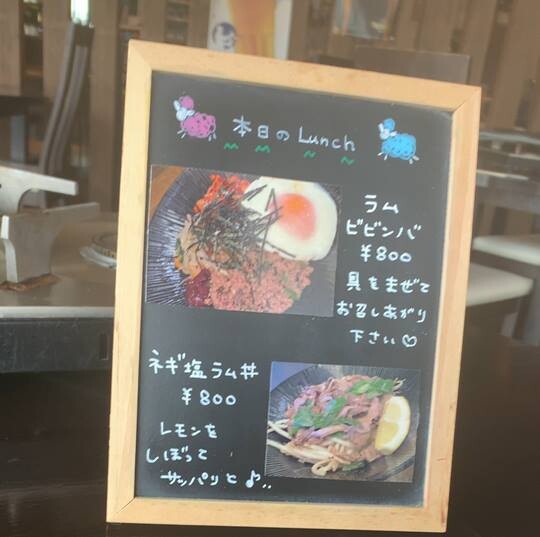 本日のLunch
ラム
ビビンバ
¥800
具をまぜて
お召しあがり
下さい♡
ネギ塩ラム丼
¥800
レモンを
しぼって
サッパリと♪..